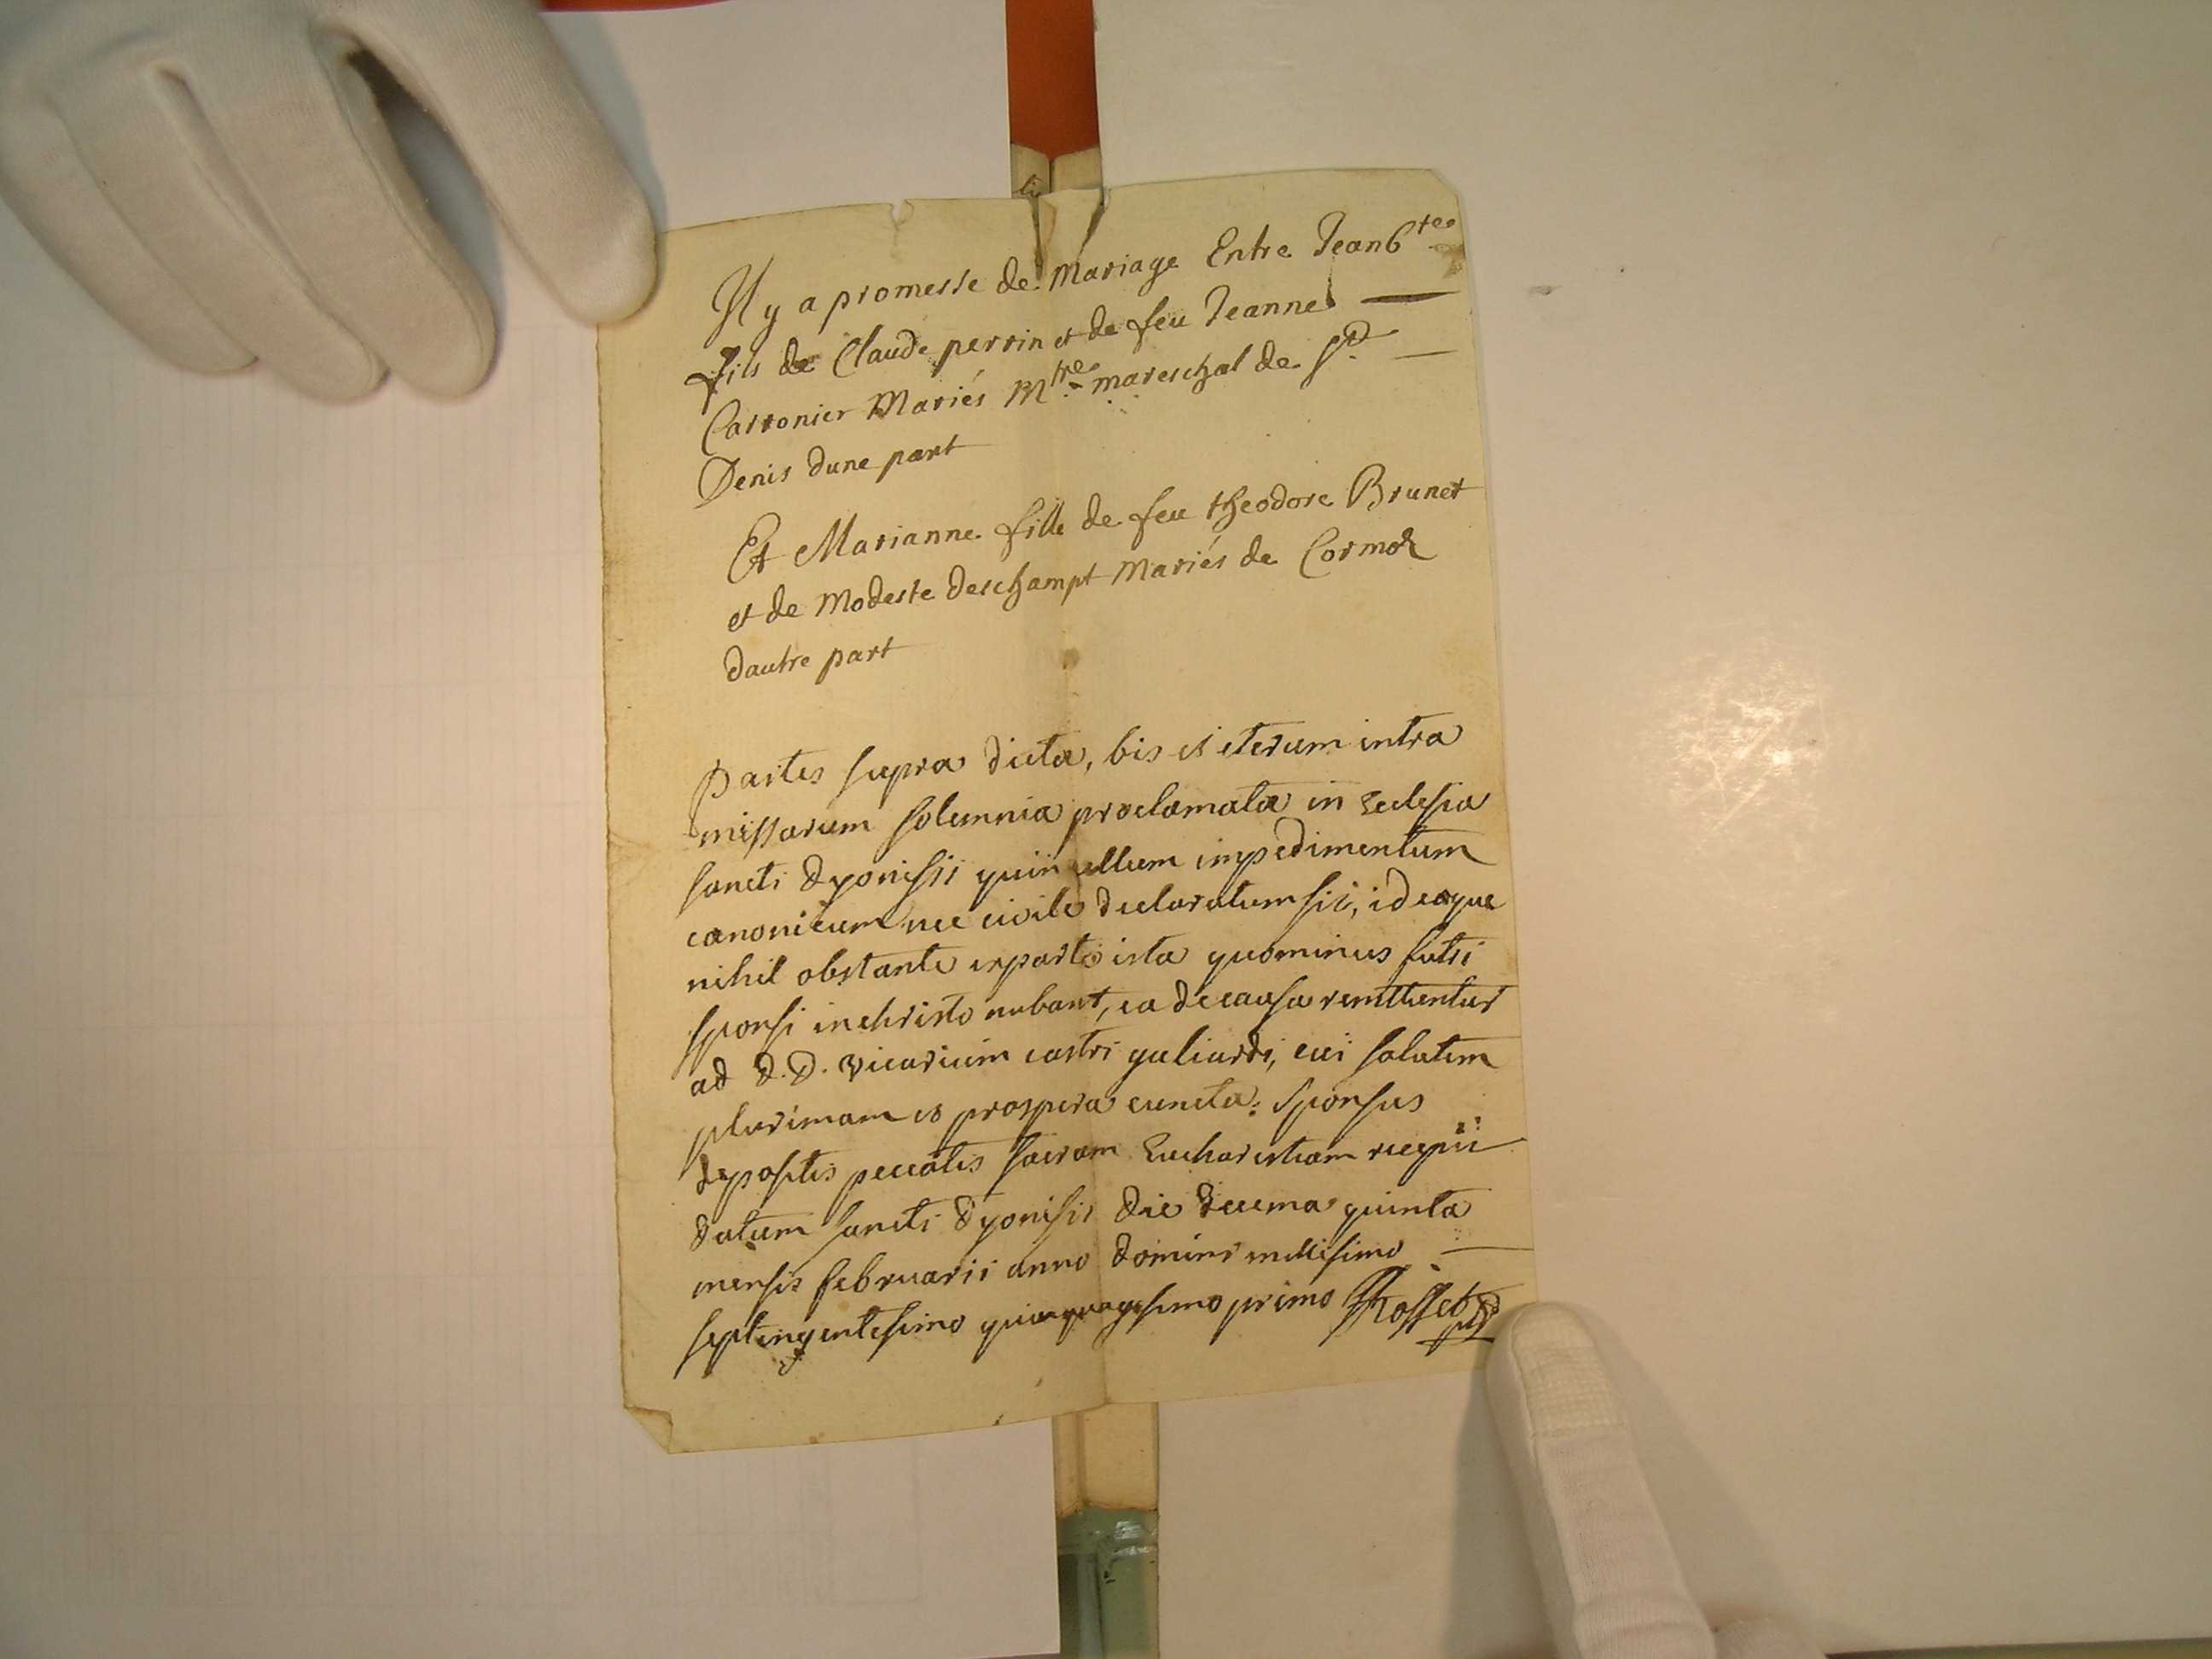 Il y a promesse de Mariage Entre Jean bte
fils de Claude perrin et de feu Jeanne
Carronier Mariés Mtre mareschal de St
Denis dune part
Et Marianne fille de feu theodore Brunet
et de Modeste deschampt Mariés de Cormoz
dautre part
Partes supra dicta, bis et iterum intra
missarum solemnia proclamata in Ecclesia
sancti dyonisii quin ullum impedimentum
canonicum nec civile declaratum sit, ideoque
nihil obstante exparte ista quominus futri
sponsi in christo nubant, ea de causa remittuntur
ad d. d. vicarium castri galiardi, cui salutem
plurimam et prospera cuncta: Sponsus
depositis peccatis sacram Eucharistiam recepit
datum sancti dyonisii die decima quinta
mensis februarii anno domini millesimo
septingentesimo quinquagesimo primo Rosset